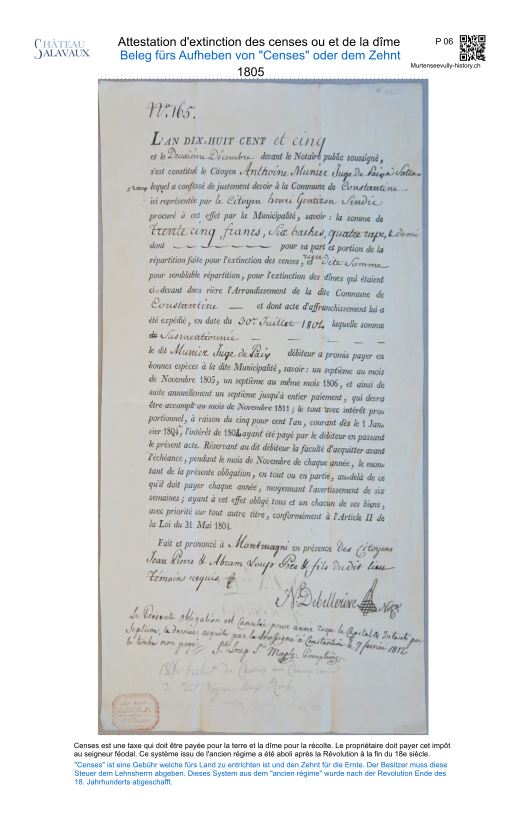 CHÂTEAU
SALAVAUX
Attestation d'extinction des censes ou et de la dîme
Beleg fürs Aufheben von "Censes" oder dem Zehnt
1805
P 06
Murtenseevully-history.ch
N.º 165.
L'AN DIX-HUIT CENT et cinq
et le Deuxième Décembre devant le Notaire public soussigné,
s'est constitué le Citoyen Anthoine Munier Juge de Paix à
lequel a confessé de justement devoir à la Commune de Constantine
ici représentée par le Citoyen henri Gentizon Sindic
procuré à cet effet par la Municipalité, savoir : la somme de
trente cinq francs, Six baches, quatre rape, & demi
dont — pour sa part et portion de la
répartition faite pour l'extinction des censes, et dite Somme
pour semblable répartition, pour l'extinction des dîmes qui étaient
ci-devant dues rière l'Arrondissement de la dite Commune de
Constantine — et dont acte d'affranchissement lui a
été expédié, en date du 30.e Juillet 1804 laquelle somme
de Susmentionnée — — — —
le dit Munier Juge de Paix débiteur a promis payer en
bonnes espèces à la dite Municipalité, savoir : un septième au mois
de Novembre 1805, un septième au même mois 1806, et ainsi de
suite annuellement un septième jusqu'à entier paiement, qui devra
être accompli au mois de Novembre 1811 ; le tout avec intérêt pro-
portionnel, à raison du cinq pour cent l'an, courant dès le 1 Jan-
vier 1804, l'intérêt de 1804 ayant été payé par le débiteur en passant
le présent acte. Réservant au dit débiteur la faculté d'acquitter avant
l'échéance, pendant le mois de Novembre de chaque année, le mon-
tant de la présente obligation, en tout ou en partie, au-delà de ce
qu'il doit payer chaque année, moyennant l'avertissement de six
semaines ; ayant à cet effet obligé tous et un chacun de ses biens,
avec priorité sur tout autre titre, conformément à l'Article II de
la Loi du 31 Mai 1804.
Fait et prononcé à Montmagni en présence Des Citoyens
Jean Pierre & Abram Loup Père & fils dudit lieu
témoins requis
N. Debellerive Not.
Le Présente Obligation est Cancelée pour avoir reçu le Capital & Interets par
Septième, la dernière acquitté par le Soussigné à Constantine le 7 fevrier 1812
le timbre non payé
Censes est une taxe qui doit être payée pour la terre et la dîme pour la récolte. Le propriétaire doit payer cet impôt
au seigneur féodal. Ce système issu de l'ancien régime a été aboli après la Révolution à la fin du 18e siècle.
"Censes" ist eine Gebühr welche fürs Land zu entrichten ist und den Zehnt für die Ernte. Der Besitzer muss diese
Steuer dem Lehnsherrn abgeben. Dieses System aus dem "ancien régime" wurde nach der Revolution Ende des
18. Jahrhunderts abgeschafft.